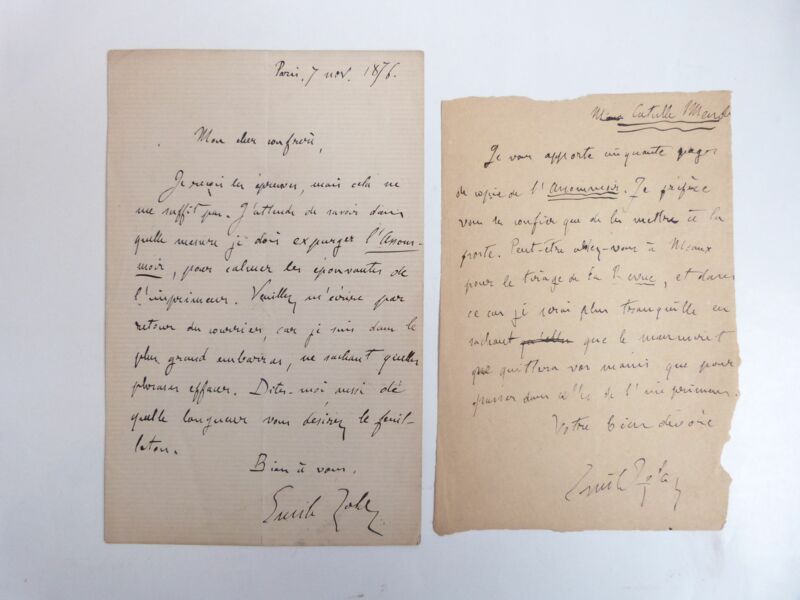 Paris, 7 nov. 1876.
Mon cher confrère,
Je reçois les épreuves, mais cela ne
me suffit pas. J'attends de savoir dans
quelle mesure je dois expurger l'Assom-
moir, pour calmer les épouvantes de
l'imprimeur. Veuillez m'écrire par
retour du courrier, car je suis dans le
plus grand embarras, ne sachant quelles
phrases effacer. Dites-moi aussi de
quelle longueur vous désirez le feuil-
leton.
Bien à vous.
Emile Zola
Catulle Mendès
Je vous apporte cinquante pages
de copie de l'Assommoir. Je préfère
vous la confier que de la mettre à la
poste. Peut-être allez-vous à Meaux
pour le tirage de la Revue, et dans
ce cas je serai plus tranquille en
sachant que le manuscrit
ne quittera vos mains que pour
passer dans celles de l'imprimeur.
Votre bien dévoué
Emile Zola